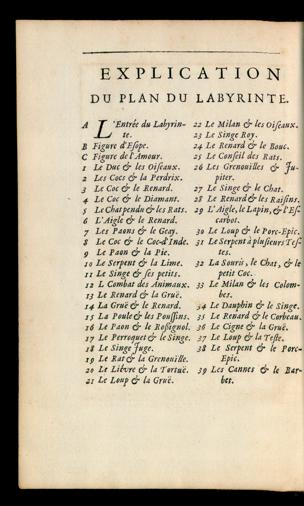 EXPLICATION
DU PLAN DU LABYRINTE.
A L'Entrée du Labyrin-
te.
B Figure d'Esope.
C Figure de l'Amour.
1 Le Duc & les Oiseaux.
2 Les Cocs & la Perdrix.
3 Le Coc & le Renard.
4 Le Coc & le Diamant.
5 Le Chat pendu & les Rats.
6 L'Aigle & le Renard.
7 Les Paons & le Geay.
8 Le Coc & le Coc-d'Inde.
9 Le Paon & la Pie.
10 Le Serpent & la Lime.
11 Le Singe & ses petits.
12 L Combat des Animaux.
13 Le Renard & la Gruë.
14 La Gruë & le Renard.
15 La Poule & les Poussins.
16 Le Paon & le Rossignol.
17 Le Perroquet & le Singe.
18 Le Singe Juge.
19 Le Rat & la Grenouille.
20 Le Liévre & la Tortuë.
21 Le Loup & la Gruë.
22 Le Milan & les Oiseaux.
23 Le Singe Roy.
24 Le Renard & le Bouc.
25 Le Conseil des Rats.
26 Les Grenouilles & Ju-
piter.
27 Le Singe & le Chat.
28 Le Renard & les Raisins.
29 L'Aigle, le Lapin, & l'Es-
carbot.
30 Le Loup & le Porc-Epic.
31 Le Serpent à plusieurs Tes-
tes.
32 La Souris, le Chat, & le
petit Coc.
33 Le Milan & les Colom-
bes.
34 Le Dauphin & le Singe.
35 Le Renard & le Corbeau.
36 Le Cigne & la Gruë.
37 Le Loup & la Teste.
38 Le Serpent & le Porc-
Epic.
39 Les Cannes & le Bar-
bet.